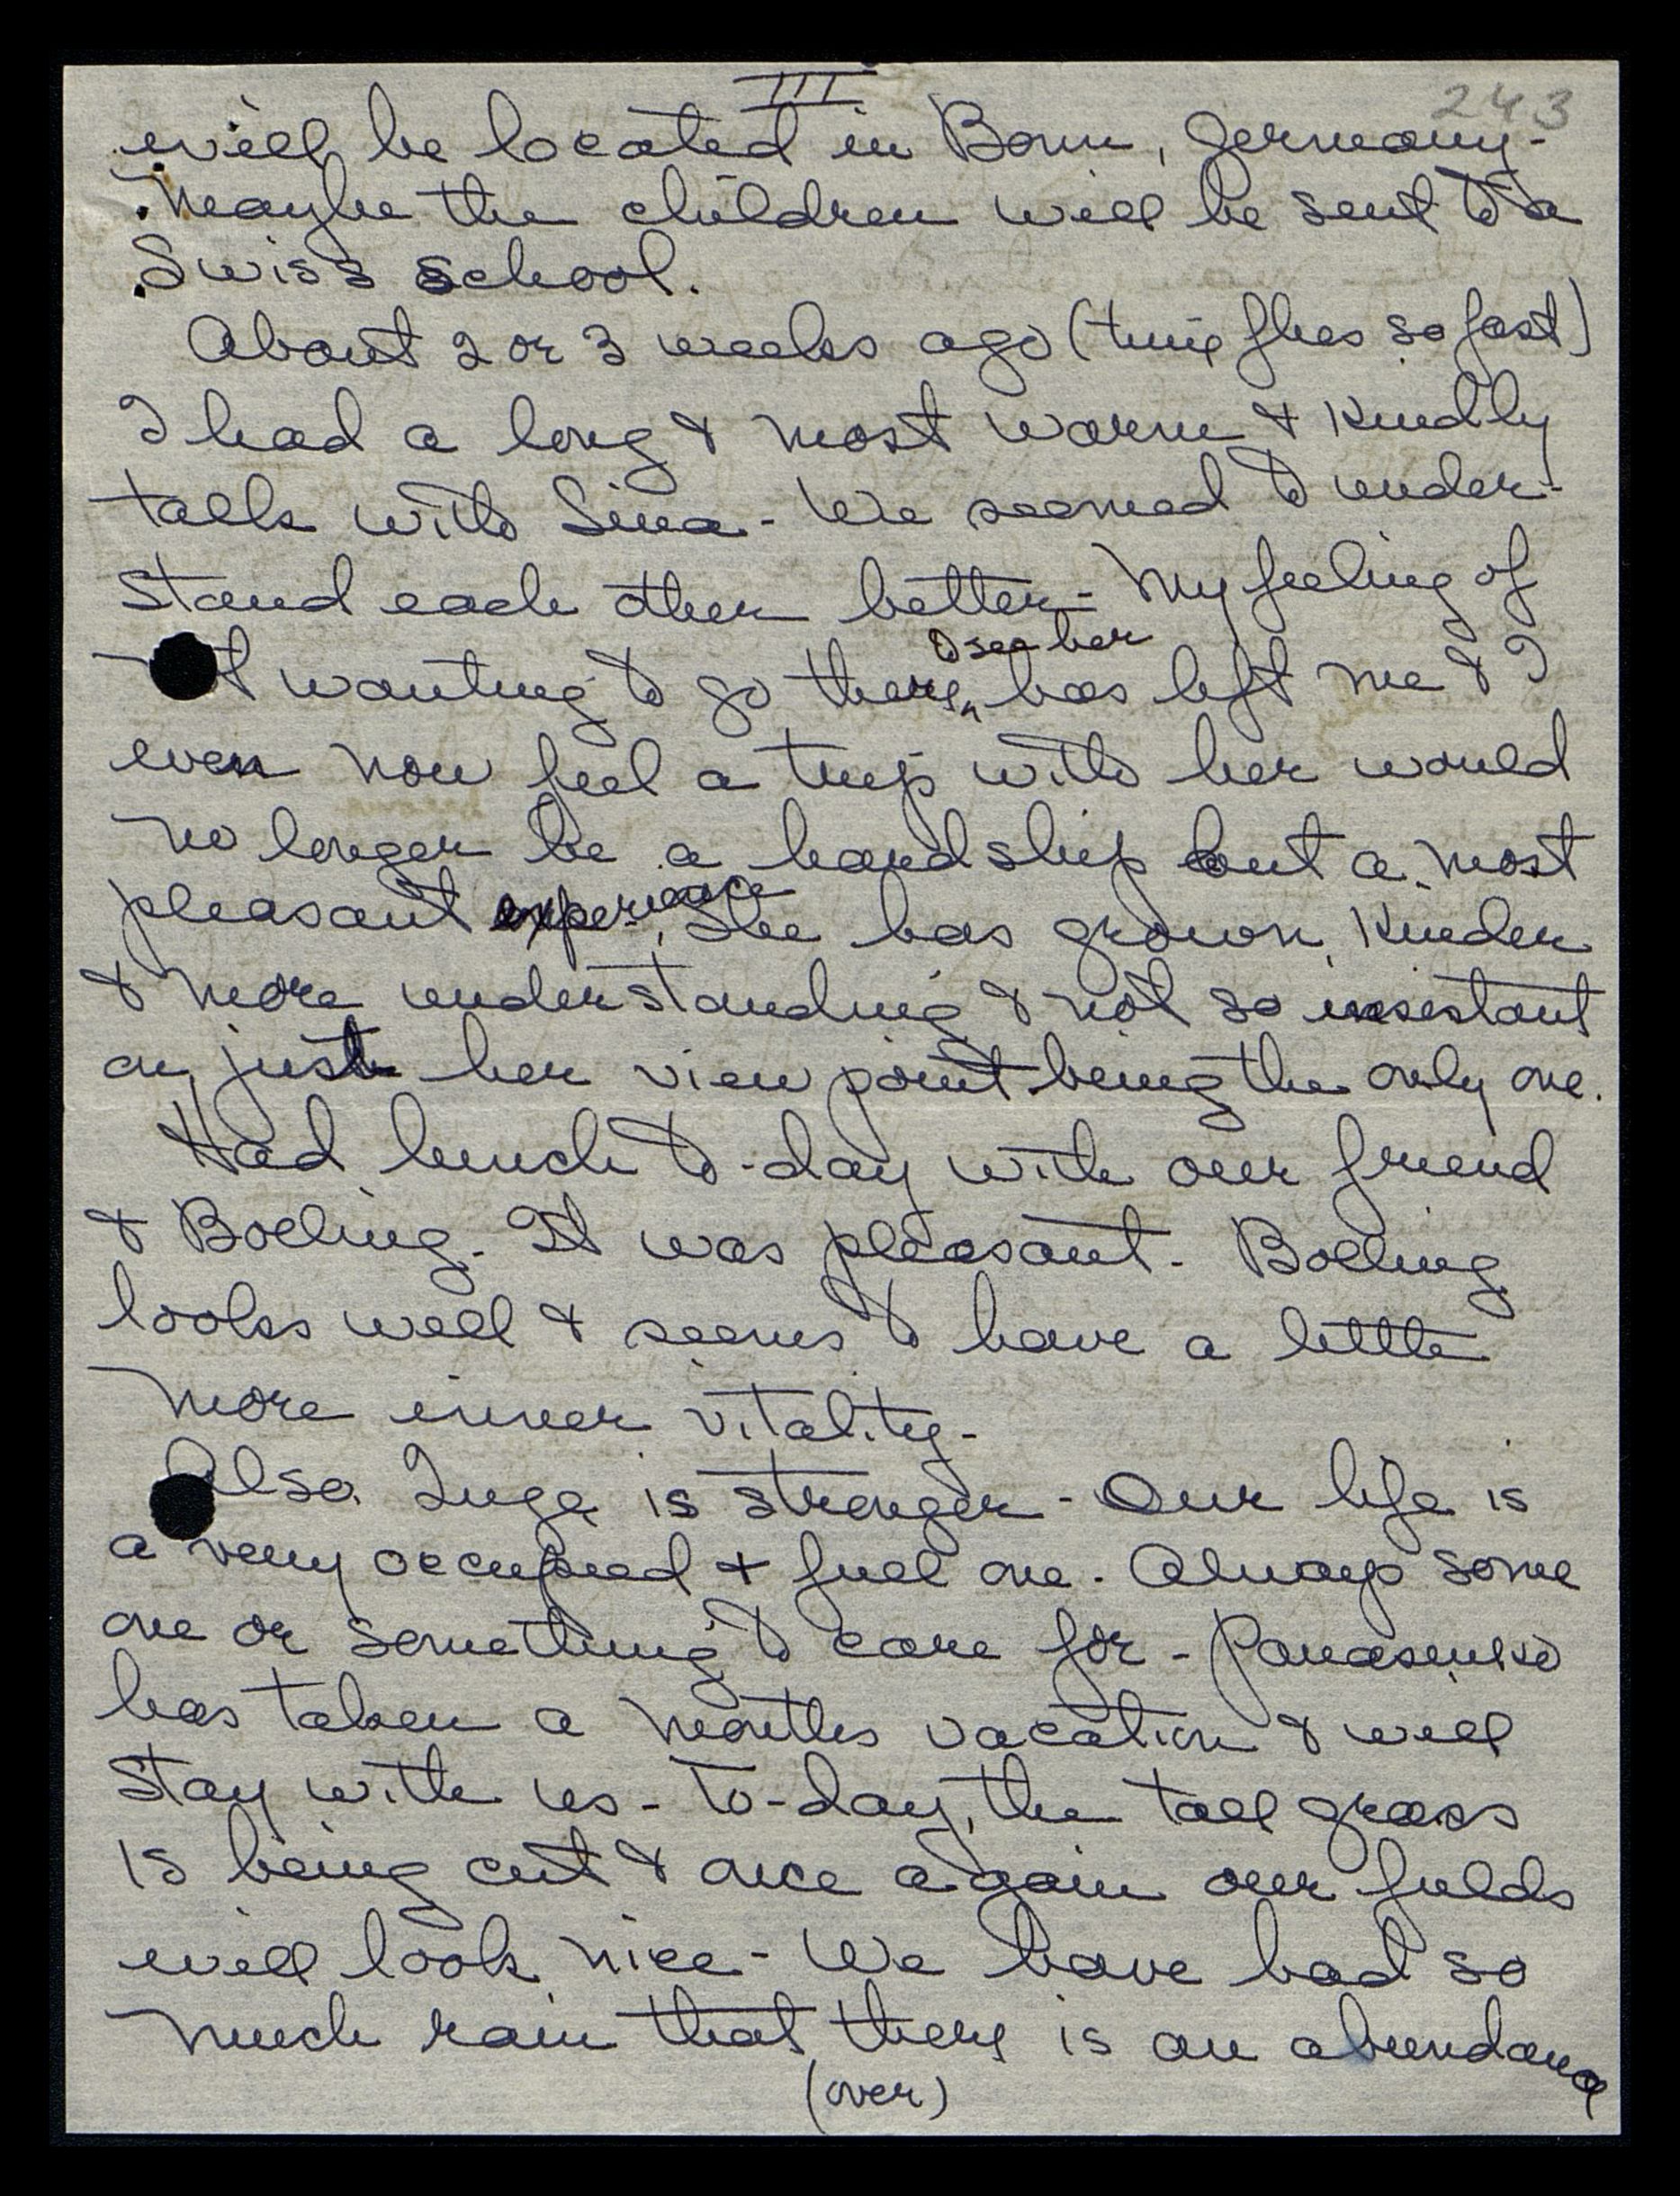 III
243
will be located in Bonn, Germany -
Maybe the children will be sent to a
Swiss school.
About 2 or 3 weeks ago (time flies so fast)
I had a long & most warm & kindly
talk with Lina - We seemed to under-
stand each other better - My feeling of
t wanting to go there
to see her
has left me & I
even now feel a trip with her would
no longer be a hardship but a most
pleasant experience, She has grown kinder
& more understanding & not so insistant
on just her view point being the only one.
Had lunch to-day with our friend
& Bolling. It was pleasant - Bolling
looks well & seems to have a little
more inner vitality -
Also Inge is stronger - Our life is
a very occupied + full one. Always some
one or something to care for - Panasenko
has taken a months vacation & will
stay with us - to-day, the tall grass
is being cut & once again our fields
will look nice - We have had so
much rain that there is an abundance
(over)